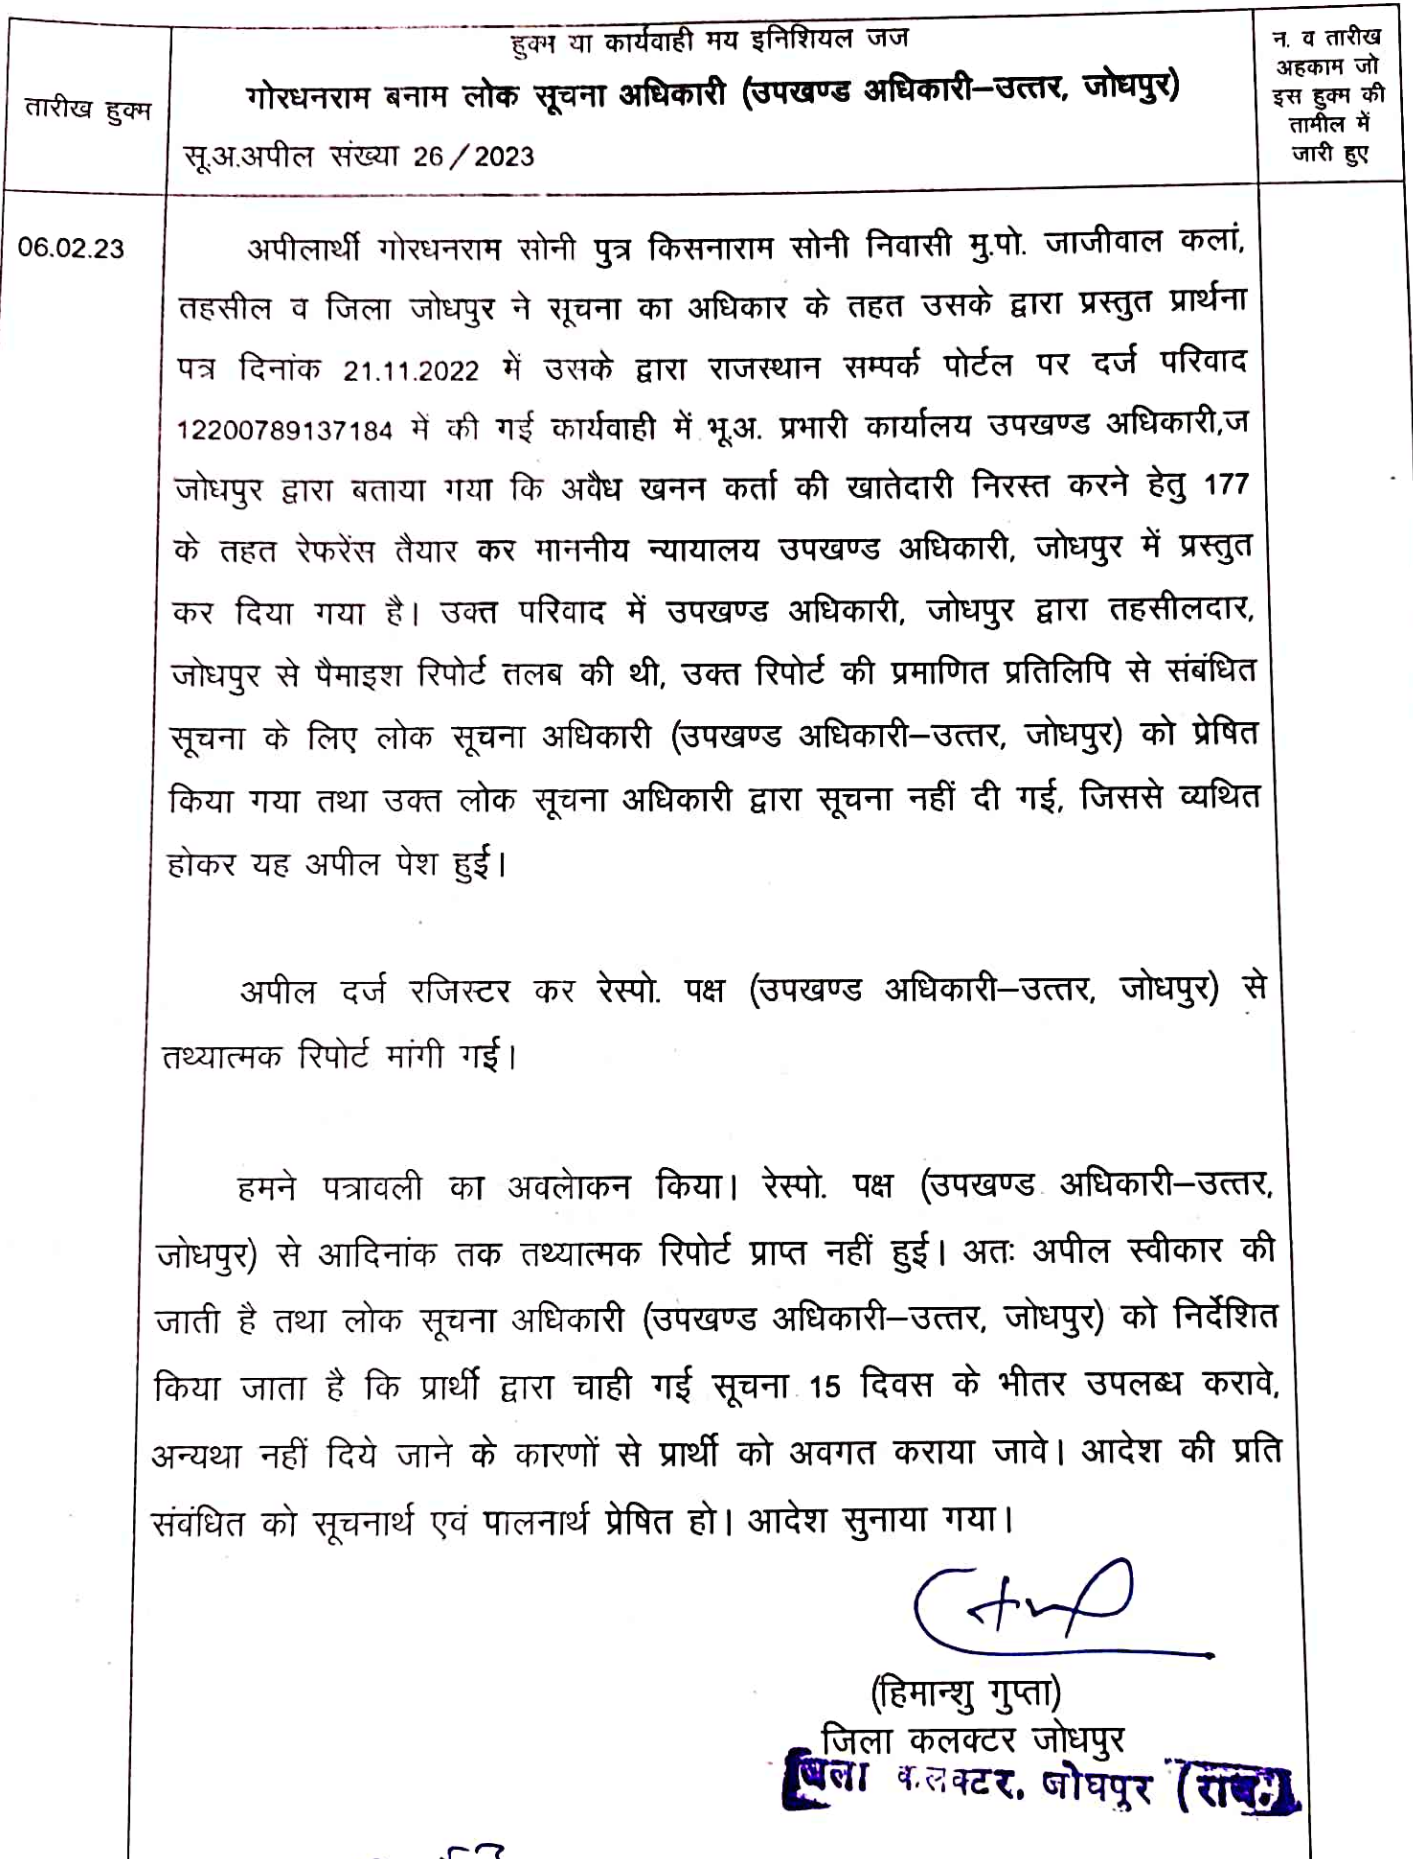 हुक्म या कार्यवाही मय इनिशियल जज
गोरधनराम बनाम लोक सूचना अधिकारी (उपखण्ड अधिकारी–उत्तर, जोधपुर)
सू.अ.अपील संख्या 26/2023
तारीख हुक्म
न. व तारीख
अहकाम जो
इस हुक्म की
तामील में
जारी हुए
06.02.23
अपीलार्थी गोरधनराम सोनी पुत्र किसनाराम सोनी निवासी मु.पो. जाजीवाल कलां,
तहसील व जिला जोधपुर ने सूचना का अधिकार के तहत उसके द्वारा प्रस्तुत प्रार्थना
पत्र दिनांक 21.11.2022 में उसके द्वारा राजस्थान सम्पर्क पोर्टल पर दर्ज परिवाद
12200789137184 में की गई कार्यवाही में भू.अ. प्रभारी कार्यालय उपखण्ड अधिकारी,ज
जोधपुर द्वारा बताया गया कि अवैध खनन कर्ता की खातेदारी निरस्त करने हेतु 177
के तहत रेफरेंस तैयार कर माननीय न्यायालय उपखण्ड अधिकारी, जोधपुर में प्रस्तुत
कर दिया गया है। उक्त परिवाद में उपखण्ड अधिकारी, जोधपुर द्वारा तहसीलदार,
जोधपुर से पैमाइश रिपोर्ट तलब की थी, उक्त रिपोर्ट की प्रमाणित प्रतिलिपि से संबंधित
सूचना के लिए लोक सूचना अधिकारी (उपखण्ड अधिकारी–उत्तर, जोधपुर) को प्रेषित
किया गया तथा उक्त लोक सूचना अधिकारी द्वारा सूचना नहीं दी गई, जिससे व्यथित
होकर यह अपील पेश हुई।
अपील दर्ज रजिस्टर कर रेस्पो. पक्ष (उपखण्ड अधिकारी–उत्तर, जोधपुर) से
तथ्यात्मक रिपोर्ट मांगी गई।
हमने पत्रावली का अवलोकन किया। रेस्पो. पक्ष (उपखण्ड अधिकारी–उत्तर,
जोधपुर) से आदिनांक तक तथ्यात्मक रिपोर्ट प्राप्त नहीं हुई। अतः अपील स्वीकार की
जाती है तथा लोक सूचना अधिकारी (उपखण्ड अधिकारी–उत्तर, जोधपुर) को निर्देशित
किया जाता है कि प्रार्थी द्वारा चाही गई सूचना 15 दिवस के भीतर उपलब्ध करावे,
अन्यथा नहीं दिये जाने के कारणों से प्रार्थी को अवगत कराया जावे। आदेश की प्रति
संबंधित को सूचनार्थ एवं पालनार्थ प्रेषित हो। आदेश सुनाया गया।
(हिमान्शु गुप्ता)
जिला कलक्टर जोधपुर
जिला कलक्टर, जोधपुर (राज.)